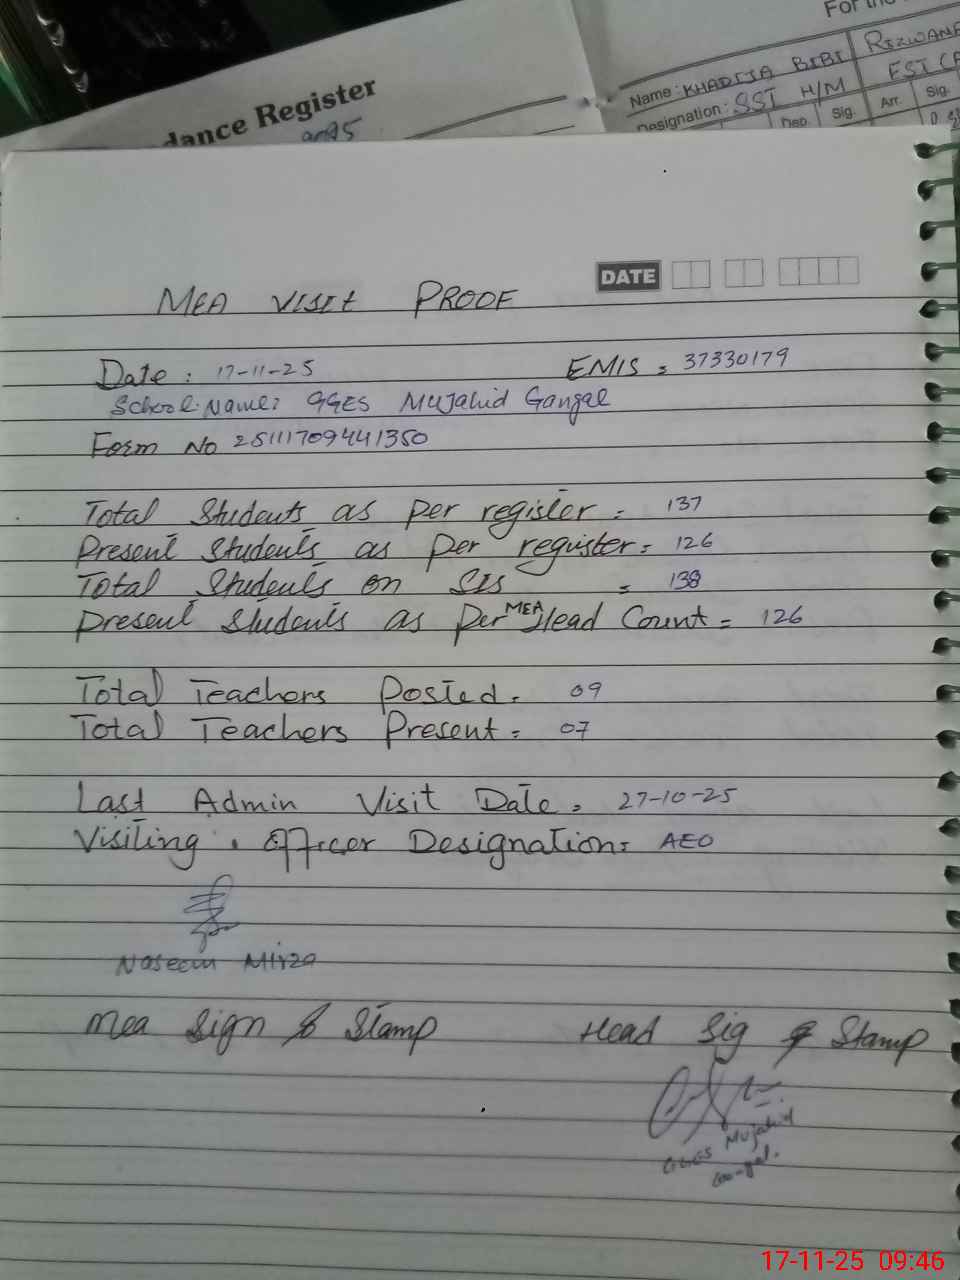 For the
dance Register
2025
Name: KHADIJA BIBI
RIZWANA
Designation: SST H/M
EST
Dep. Sig. Arr. Sig.
DATE
MEA VISIT PROOF
Date : 17-11-25 EMIS = 37330179
School Name: GGES Mujahid Gangal
Form No 25111709441350
Total Students as per register = 137
Present Students as per register = 126
Total Students on SIS = 138
Present Students as per MEA Head Count = 126
Total Teachers Posted = 09
Total Teachers Present = 07
Last Admin Visit Date = 27-10-25
Visiting Officer Designation = AEO
Naseem Mirza
Mea Sign & Stamp Head Sig & Stamp
GGES Mujahid
Gangal.
17-11-25 09:46